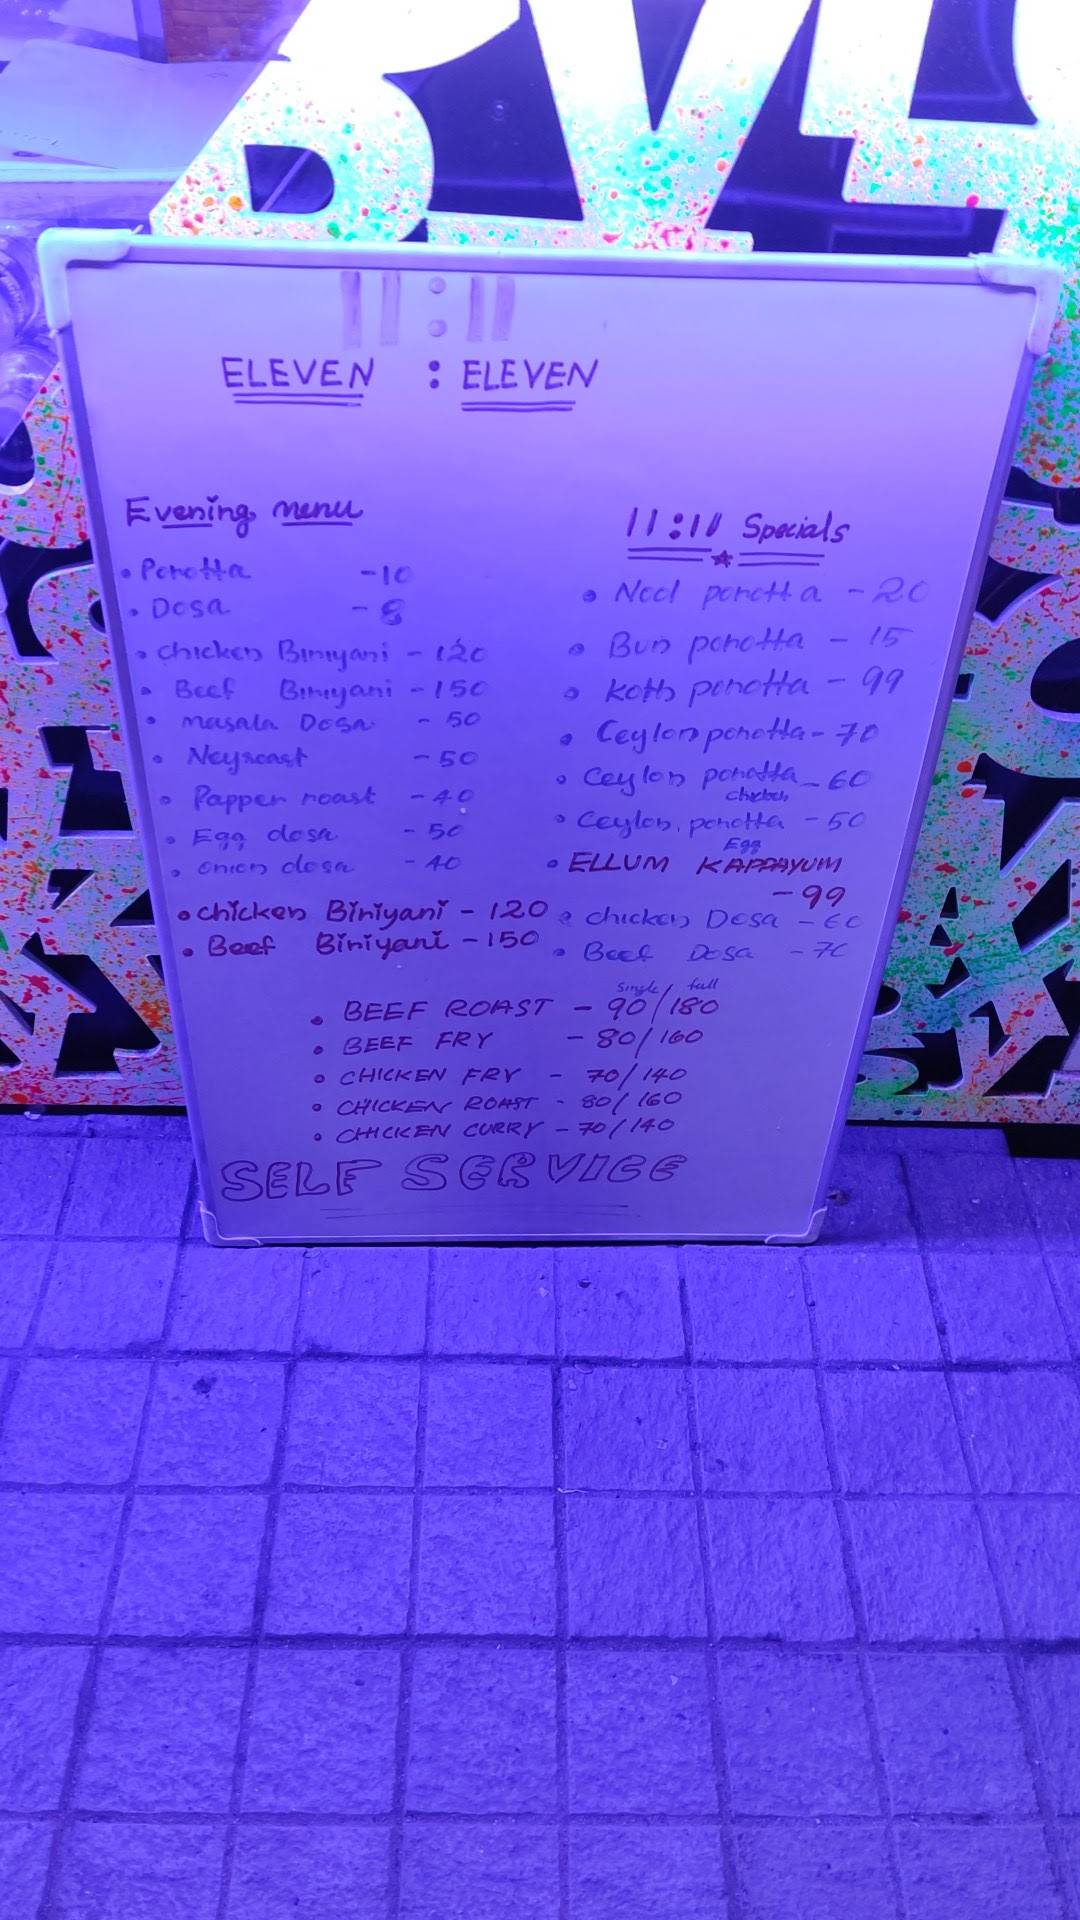 11:11
ELEVEN : ELEVEN
Evening menu
• Porotta - 10
• Dosa - 8
• chicken Biriyani - 120
• Beef Biriyani - 150
• masala Dosa - 50
• Neyroast - 50
• Papper roast - 40
• Egg dosa - 50
• onion dosa - 40
• chicken Biriyani - 120
• Beef Biriyani - 150
11:11 Specials
• Nool porotta - 20
• Bun porotta - 15
• Koth porotta - 99
• Ceylon porotta - 70
• Ceylon porotta - 60
chicken
• Ceylon porotta - 50
Egg
• ELLUM KAPPAYUM
- 99
• chicken Dosa - 60
• Beef Dosa - 70
single / full
• BEEF ROAST - 90/180
• BEEF FRY - 80/160
• CHICKEN FRY - 70/140
• CHICKEN ROAST - 80/160
• CHICKEN CURRY - 70/140
SELF SERVICE